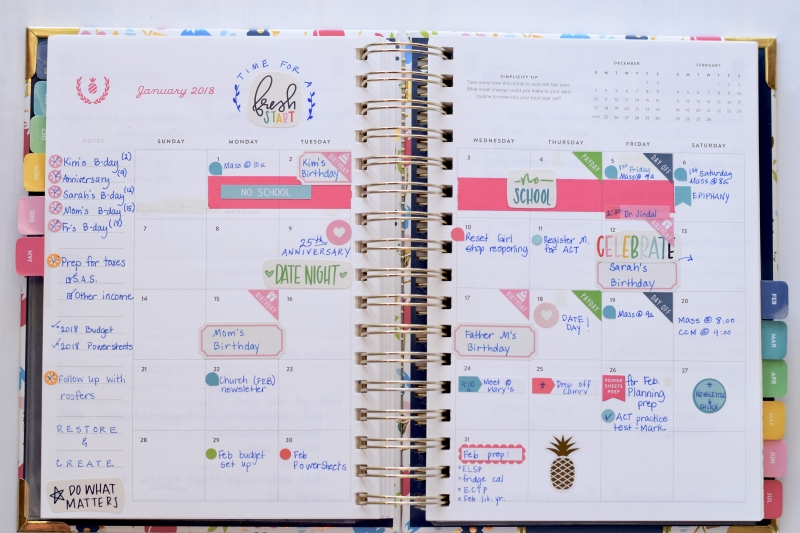 January 2018
TIME FOR A
fresh
START
SIMPLICITY TIP
DECEMBER
FEBRUARY
NOTES
SUNDAY
MONDAY
TUESDAY
WEDNESDAY
THURSDAY
FRIDAY
SATURDAY
Kim's B-day (2)
Anniversary (9)
Sarah's B-day (12)
Mom's B-day (15)
Fr's B-day (17)
Prep for taxes
S.A.S.
Other income
2018 Budget
2018 Powersheets
Follow up with
roofers
RESTORE
&
CREATE
DO WHAT
MATTERS
1
Mass @ 10a
2
Kim's
Birthday
BIRTHDAY
NO SCHOOL
3
4
PAYDAY
no
SCHOOL
5
DAY OFF
1st Friday
Mass @ 9a
Dr. Jindal
6
1st Saturday
Mass @ 8a
EPIPHANY
7
8
9
25th
ANNIVERSARY
DATE NIGHT
10
Reset Girl
shop reopening
11
Register M.
for ACT
CELEBRATE
Sarah's
Birthday
13
14
15
BIRTHDAY
Mom's
Birthday
16
17
BIRTHDAY
Father M's
Birthday
18
PAYDAY
DATE
DAY!
19
DAY OFF
Mass @ 9a
20
Mass @ 8:00
CCM @ 9:00
21
22
Church (PEB)
newsletter
23
24
9:00
Meet @
Mary's
25
Drop off
Camry
26
POWER
SHEETS
PREP
for Feb.
Planning
prep
ACT practice
test - Mark
27
NEWSLETTER
28
29
Feb budget
set up
30
Feb
PowerSheets
31
Feb prep:
ELSP
fridge cal
ECTP
Feb lit. yr.
FEB
MAR
APR
MAY
JUN
JUL